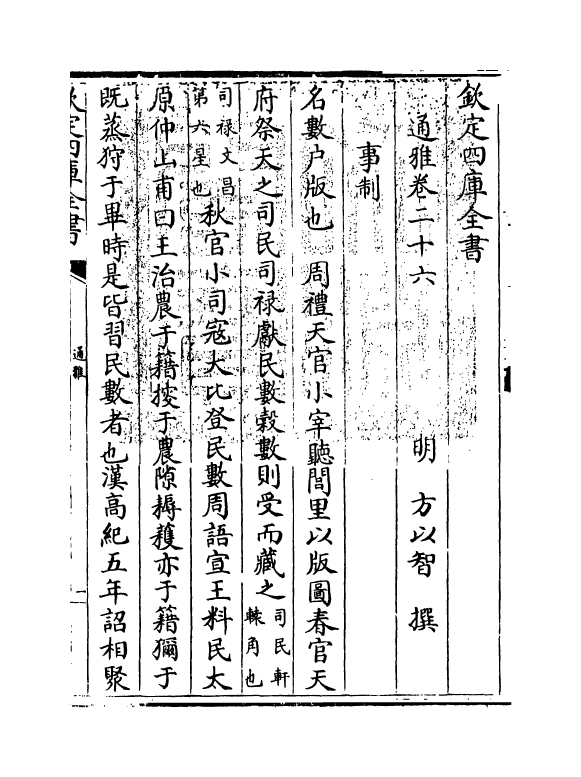 欽定四庫全書
通雅卷二十六
明 方以智 撰
事制
名數户版也 周禮天官小宰聽閭里以版圖春官天
府祭天之司民司禄獻民數穀數則受而藏之司民軒轅角也
司禄文昌第六星也秋官小司寇大比登民數周語宣王料民太
原仲山甫曰王治農于籍搜于農隙耨穫亦于籍獮于
既蒸狩于畢時是皆習民數者也漢高紀五年詔相聚
欽定四庫全書
通雅
一